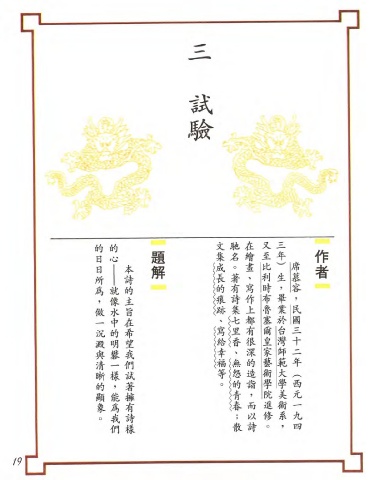 三 試驗
作者
席慕容，民國三十二年（西元一九四
三年）生，畢業於台灣師範大學美術系，
又至比利時布魯塞爾皇家藝術學院進修。
在繪畫、寫作上都有很深的造詣，而以詩
馳名。著有詩集七里香、無怨的青春；散
文集成長的痕跡、寫給幸福等。
題解
本詩的主旨在希望我們試著擁有詩樣
的心——就像水中的明礬一樣，能為我們
的日日所為，做一沉澱與清晰的顯象。
19